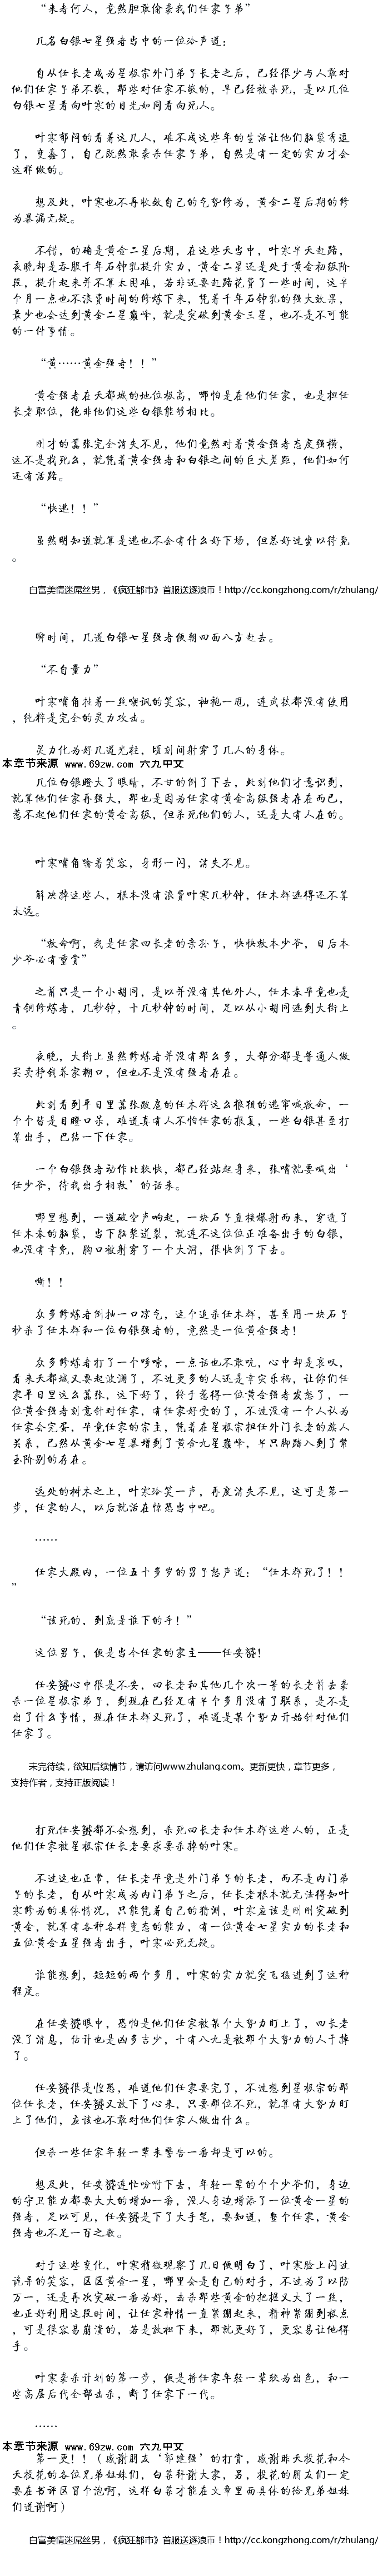 “来者何人，竟然胆敢偷袭我们任家子弟”
几名白银七星强者当中的一位冷声道：
自从任长老成为星极宗外门弟子长老之后，已经很少与人敢对
他们任家子弟不敬，那些对任家不敬的，早已经被杀死，是以几位
白银七星看向叶寒的目光如同看向死人。
叶寒郁闷的看着这几人，难不成这些年的生活让他们脑袋秀逗
了，变蠢了，自己既然敢袭杀任家子弟，自然是有一定的实力才会
这样做的。
想及此，叶寒也不再收敛自己的气势修为，黄金二星后期的修
为暴漏无疑。
不错，的确是黄金二星后期，在这些天当中，叶寒早天赶路，
夜晚却是吞服千年石钟乳提升实力，黄金二星还是处于黄金初级阶
段，提升起来并不算太困难，若非还要赶路花费了一些时间，这半
个月一点也不浪费时间的修炼下来，凭着千年石钟乳的强大效果，
最少也会达到黄金二星巅峰，就是突破到黄金三星，也不是不可能
的一件事情。
“黄……黄金强者！！”
黄金强者在天都城的地位极高，哪怕是在他们任家，也是担任
长老职位，绝非他们这些白银能够相比。
刚才的嚣张完全消失不见，他们竟然对着黄金强者态度强横，
这不是找死么，就凭着黄金强者和白银之间的巨大差距，他们如何
还有活路。
“快逃！！”
虽然明知道就算是逃也不会有什么好下场，但总好过坐以待毙
。
白富美情迷屌丝男，《疯狂都市》首服送逐浪币！http://cc.kongzhong.com/r/zhulang/
瞬时间，几道白银七星强者便朝四面八方赶去。
“不自量力”
叶寒嘴角挂着一丝嘲讽的笑容，袖袍一甩，连武技都没有使用
，纯粹是完全的灵力攻击。
灵力化为好几道光柱，顷刻间射穿了几人的身体。
本章节来源 www.69zw.com 六九中文
几位白银瞪大了眼睛，不甘的倒了下去，此刻他们才意识到，
就算他们任家再强大，那也是因为任家有黄金高级强者存在而已，
惹不起他们任家的黄金高级，但杀死他们的人，还是大有人在的。
叶寒嘴角噙着笑容，身形一闪，消失不见。
解决掉这些人，根本没有浪费叶寒几秒钟，任木群逃得还不算
太远。
“救命啊，我是任家四长老的亲孙子，快快救本少爷，日后本
少爷必有重赏”
之前只是一个小胡同，是以并没有其他外人，任木秦毕竟也是
青铜修炼者，几秒钟，十几秒钟的时间，足以从小胡同逃到大街上
。
夜晚，大街上虽然修炼者并没有那么多，大部分都是普通人做
买卖挣钱养家糊口，但也不是没有强者存在。
此刻看到平日里嚣张跋扈的任木群这么狼狈的逃窜喊救命，一
个个皆是目瞪口呆，难道真有人不怕任家的报复，一些白银甚至打
算出手，巴结一下任家。
一个白银强者动作比较快，都已经站起身来，张嘴就要喊出‘
任少爷，待我出手相救’的话来。
哪里想到，一道破空声响起，一块石子直接爆射而来，穿透了
任木秦的脑袋，当下脑浆迸裂，就连不这位位正准备出手的白银，
也没有幸免，胸口被射穿了一个大洞，很快倒了下去。
嘶！！
众多修炼者倒抽一口凉气，这个追杀任木群，甚至用一块石子
秒杀了任木群和一位白银强者的，竟然是一位黄金强者！
众多修炼者打了一个哆嗦，一点话也不敢吭，心中却是哀叹，
看来天都城又要起波澜了，不过更多的人还是幸灾乐祸，让你们任
家平日里这么嚣张，这下好了，终于惹得一位黄金强者发怒了，一
位黄金强者刻意针对任家，有任家好受的了，不过没有一个人认为
任家会完蛋，毕竟任家的宗主，凭着在星极宗担任外门长老的族人
关系，已然从黄金七星暴增到了黄金九星巅峰，半只脚踏入到了紫
玉阶别的存在。
远处的树木之上，叶寒冷笑一声，再度消失不见，这可是第一
步，任家的人，以后就活在惊恐当中吧。
……
任家大殿内，一位五十多岁的男子怒声道：“任木群死了！！
”
“该死的，到底是谁下的手！”
这位男子，便是当今任家的家主——任安赟！
任安赟心中很是不安，四长老和其他几个次一等的长老前去袭
杀一位星极宗弟子，到现在已经足有半个多月没有了联系，是不是
出了什么事情，现在任木群又死了，难道是某个势力开始针对他们
任家了。
未完待续，欲知后续情节，请访问www.zhulang.com。更新更快，章节更多，
支持作者，支持正版阅读！
打死任安赟都不会想到，杀死四长老和任木群这些人的，正是
他们任家被星极宗任长老要求要杀掉的叶寒。
不过这也正常，任长老毕竟是外门弟子的长老，而不是内门弟
子的长老，自从叶寒成为内门弟子之后，任长老根本就无法得知叶
寒修为的具体情况，只能凭着自己的猜测，叶寒应该是刚刚突破到
黄金，就算有各种各样变态的能力，有一位黄金七星实力的长老和
五位黄金五星强者出手，叶寒必死无疑。
谁能想到，短短的两个多月，叶寒的实力就突飞猛进到了这种
程度。
在任安赟眼中，恐怕是他们任家被某个大势力盯上了，四长老
没了消息，估计也是凶多吉少，十有八九是被那个大势力的人干掉
了。
任安赟很是惶恐，难道他们任家要完了，不过想到星极宗的那
位任长老，任安赟又放下了心来，只要那位不死，就算有大势力盯
上了他们，应该也不敢对他们任家人做出什么。
但杀一些任家年轻一辈来警告一番却是可以的。
想及此，任安赟连忙吩咐下去，年轻一辈的个个少爷们，身边
的守卫能力都要大大的增加一番，没人身边增添了一位黄金一星的
强者，足以可见，任安赟是下了大手笔，要知道，整个任家，黄金
强者也不足一百之数。
对于这些变化，叶寒稍微观察了几日便明白了，叶寒脸上闪过
诡异的笑容，区区黄金一星，哪里会是自己的对手，不过为了以防
万一，还是再次突破一番为好，击杀那些黄金的把握又大了一丝，
也正好利用这段时间，让任家神情一直紧绷起来，精神紧绷到极点
，可是很容易崩溃的，若是放松下来，那就更好了，更容易让他得
手。
叶寒袭杀计划的第一步，便是将任家年轻一辈较为出色，和一
些高层后代全部击杀，断了任家下一代。
……
本章节来源 www.69zw.com 六九中文
第一更！！（感谢朋友‘郭建强’的打赏，感谢昨天投花和今
天投花的各位兄弟姐妹们，白菜拜谢大家，另，投花的朋友们一定
要在书评区冒个泡啊，这样白菜才能在文章里面具体的给兄弟姐妹
们道谢啊）
白富美情迷屌丝男，《疯狂都市》首服送逐浪币！http://cc.kongzhong.com/r/zhulang/